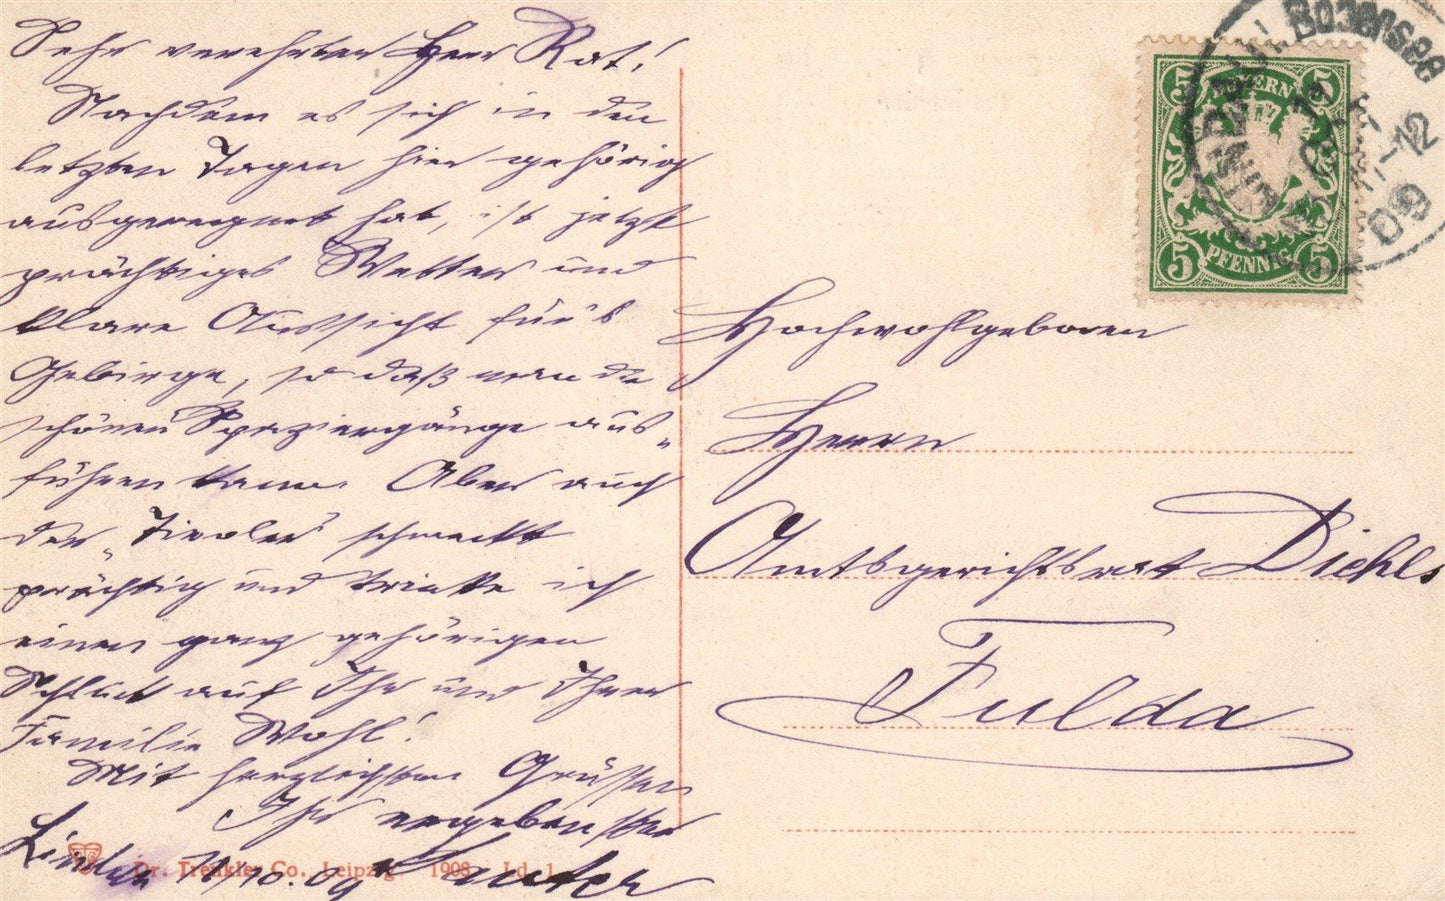 Sehr verehrter Herr Rat!
Nachdem es sich in den
letzten Tagen hier gehörig
ausgeregnet hat, ist jetzt
prächtiges Wetter und
klare Aussicht für's
Gebirge, so daß man die
schönen Spaziergänge aus-
führen kann. Aber auch
der „Tiroler" schmeckt
prächtig und trinke ich
einen ganz gehörigen
Schluck auf Ihr und Ihrer
Familie Wohl!
Mit herzlichsten Grüssen
Ihr ergebenster
Lindau 11/10.09
Dr. Trenkler Co., Leipzig 1908 Ld. 1
BAYERN
5 5
5 PFENNIG 5
Bodensee
12
09
Hochwohlgeboren
Herrn
Amtsgerichtsrat Diehls
Fulda